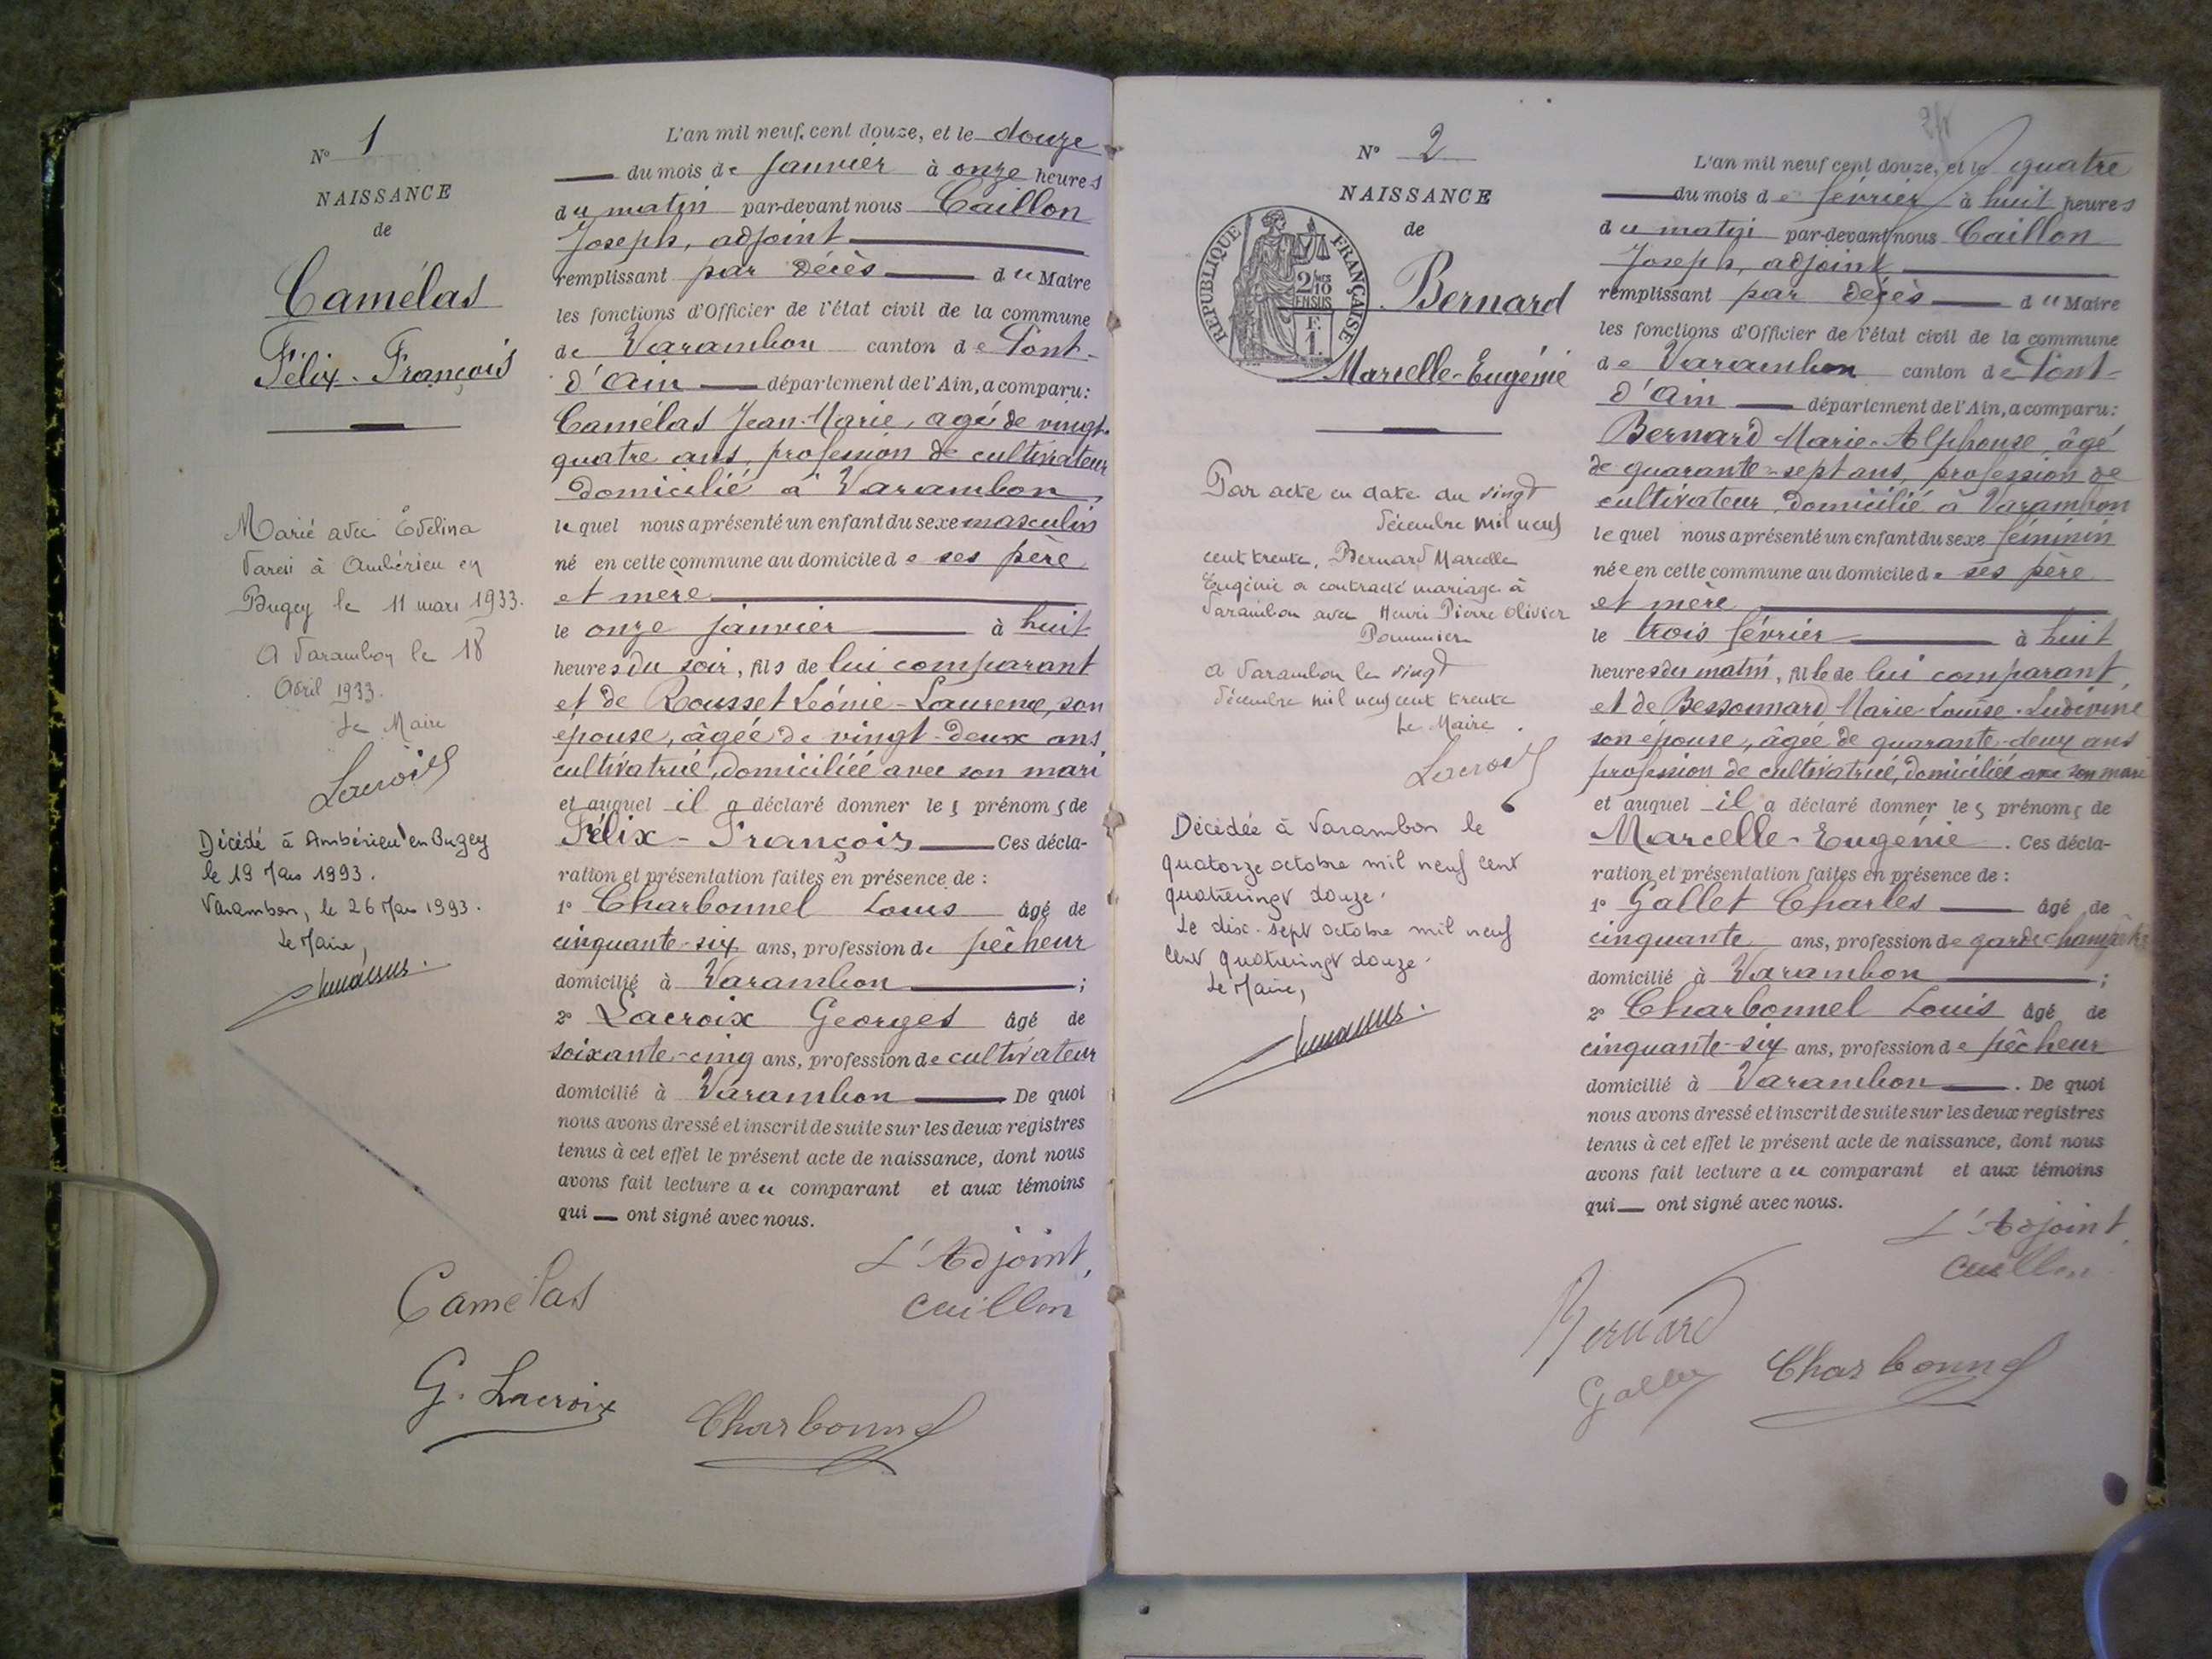 N° 1
NAISSANCE
de
Camélas
Félix-François
Marié avec Evelina
à Ambérieu en
Bugey le 11 mars 1933.
A Varambon le 18
Avril 1933.
Le Maire
Lacroix
Décédé à Ambérieu en Bugey
le 19 Mars 1993.
Varambon, le 26 Mars 1993.
Le Maire,
L'an mil neuf cent douze, et le douze
du mois de janvier à onze heures
du matin par-devant nous Caillon
Joseph, adjoint
remplissant par décès du Maire
les fonctions d'Officier de l'état civil de la commune
de Varambon canton de Pont-
d'Ain département de l'Ain, a comparu:
Camélas Jean-Marie, agé de vingt-
quatre ans, profession de cultivateur
domicilié à Varambon,
lequel nous a présenté un enfant du sexe masculin
né en cette commune au domicile de ses père
et mère
le onze janvier à huit
heures du soir, fils de lui comparant
et de Rousset Léonie-Laurence, son
épouse, âgée de vingt-deux ans,
cultivatrice, domiciliée avec son mari
et auquel il a déclaré donner les prénoms de
Félix-François Ces décla-
ration et présentation faites en présence de :
1° Charbonnel Louis âgé de
cinquante-six ans, profession de pêcheur
domicilié à Varambon ;
2° Lacroix Georges âgé de
soixante-cinq ans, profession de cultivateur
domicilié à Varambon De quoi
nous avons dressé et inscrit de suite sur les deux registres
tenus à cet effet le présent acte de naissance, dont nous
avons fait lecture au comparant et aux témoins
qui ont signé avec nous.
L'Adjoint,
Camelas Caillon
G. Lacroix Charbonnel
N° 2
NAISSANCE
de
RÉPUBLIQUE FRANÇAISE
2/10
EN SUS
F.
1.
Bernard
Marcelle-Eugénie
Par acte en date du vingt
décembre mil neuf
cent trente, Bernard Marcelle
Eugénie a contracté mariage à
Varambon avec Henri Pierre Olivier
Pommier
A Varambon le vingt
décembre mil neuf cent trente
Le Maire
Lacroix
Décédée à Varambon le
quatorze octobre mil neuf cent
quatrevingt douze.
Le dix-sept octobre mil neuf
cent quatrevingt douze.
Le Maire,
L'an mil neuf cent douze, et le quatre
du mois de février à huit heures
du matin par-devant nous Caillon
Joseph, adjoint
remplissant par décès du Maire
les fonctions d'Officier de l'état civil de la commune
de Varambon canton de Pont-
d'Ain département de l'Ain, a comparu:
Bernard Marie-Alphonse, âgé
de quarante-sept ans, profession de
cultivateur, domicilié à Varambon
lequel nous a présenté un enfant du sexe féminin
née en cette commune au domicile de ses père
et mère
le trois février à huit
heures du matin, fille de lui comparant,
et de Bessonnard Marie-Louise-Ludivine
son épouse, âgée de quarante-deux ans
profession de cultivatrice, domiciliée avec son mari
et auquel il a déclaré donner les prénoms de
Marcelle-Eugénie. Ces décla-
ration et présentation faites en présence de :
1° Gallet Charles âgé de
cinquante ans, profession de garde champêtre
domicilié à Varambon ;
2° Charbonnel Louis âgé de
cinquante-six ans, profession de pêcheur
domicilié à Varambon. De quoi
nous avons dressé et inscrit de suite sur les deux registres
tenus à cet effet le présent acte de naissance, dont nous
avons fait lecture au comparant et aux témoins
qui ont signé avec nous.
L'Adjoint,
Caillon
Bernard
Gallet Charbonnel